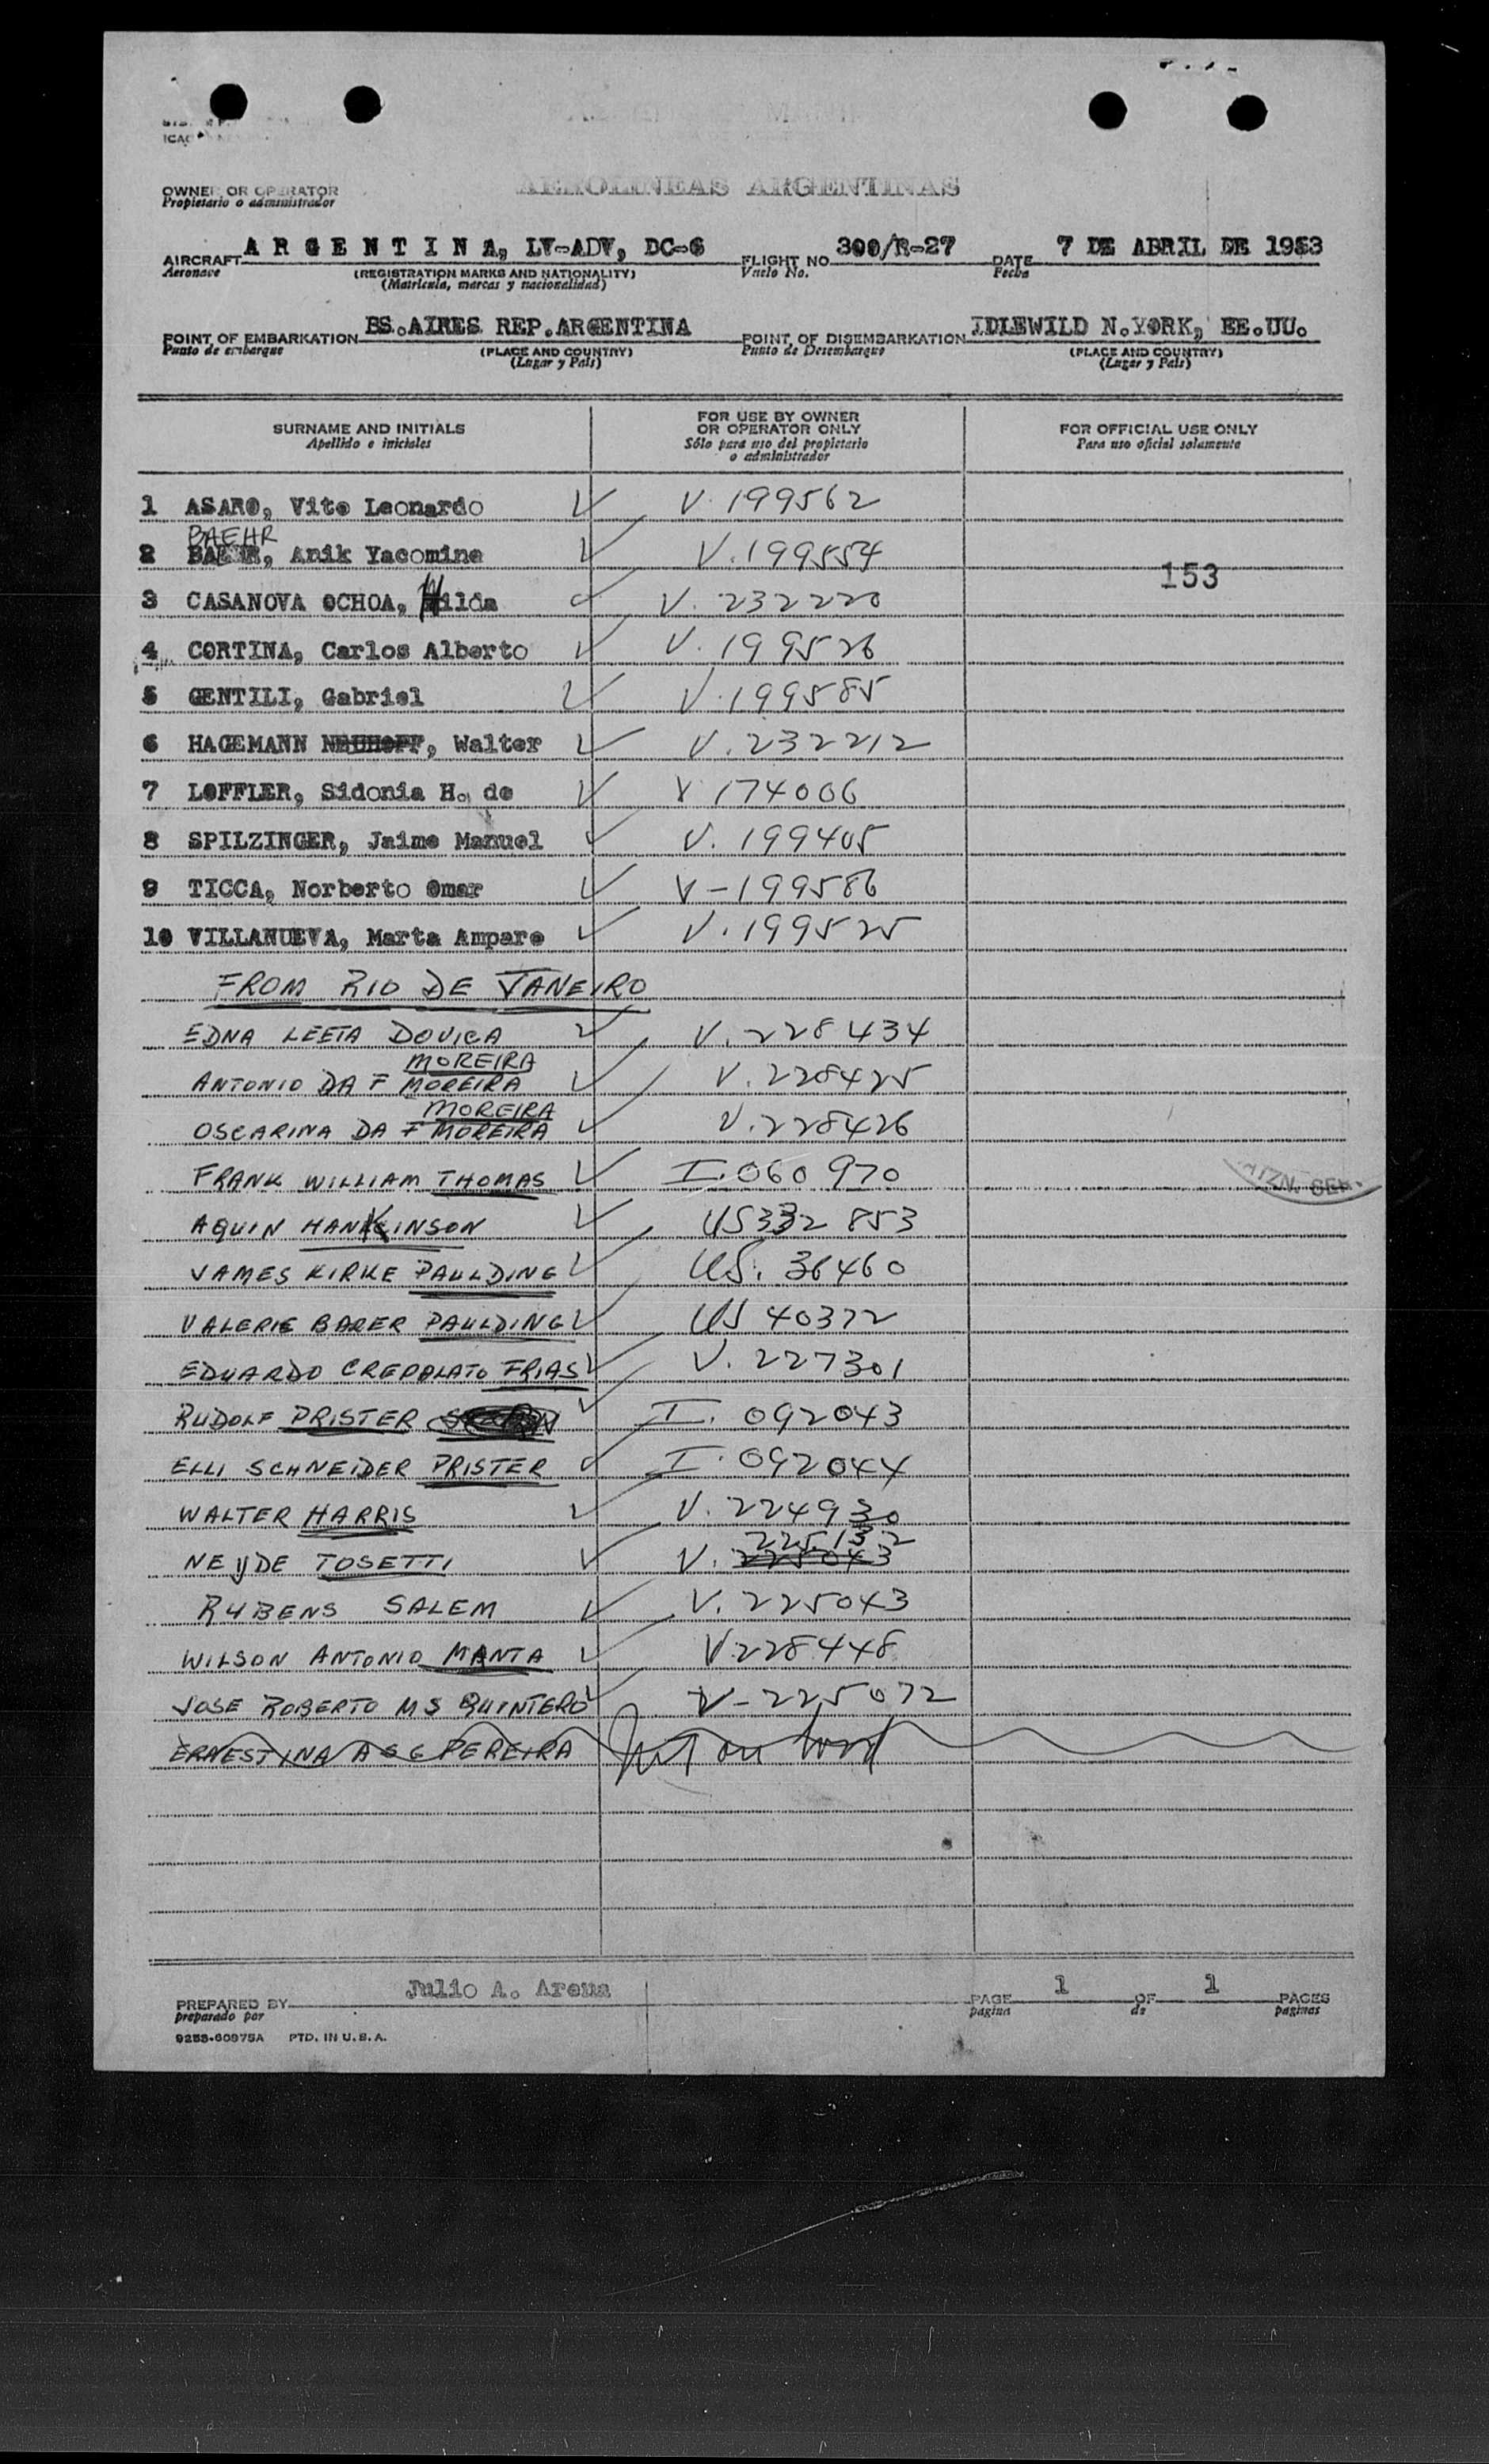 OWNER OR OPERATOR
Propietario o administrador
AEROLINEAS ARGENTINAS
AIRCRAFT ARGENTINA, LV-ADV, DC-6 FLIGHT NO 300/R-27 DATE 7 DE ABRIL DE 1953
Aeronave (REGISTRATION MARKS AND NATIONALITY) Vuelo No. Fecha
(Matrícula, marcas y nacionalidad)
POINT OF EMBARKATION BS.AIRES REP.ARGENTINA POINT OF DISEMBARKATION IDLEWILD N.YORK, EE.UU.
Punto de embarque (PLACE AND COUNTRY) Punto de Desembarque (PLACE AND COUNTRY)
(Lugar y País) (Lugar y País)
SURNAME AND INITIALS FOR USE BY OWNER OR OPERATOR ONLY FOR OFFICIAL USE ONLY
Apellido e iniciales Sólo para uso del propietario o administrador Para uso oficial solamente
1 ASARO, Vito Leonardo V. 199562
BAEHR
2 , Anik Yacomine V. 199554
153
3 CASANOVA OCHOA, Hilda V. 232220
4 CORTINA, Carlos Alberto V. 199526
5 GENTILI, Gabriel V. 199585
6 HAGEMANN NEUHOFF, Walter V. 232212
7 LOFFLER, Sidonia H. de V 174006
8 SPILZINGER, Jaime Manuel V. 199405
9 TICCA, Norberto Omar V-199586
10 VILLANUEVA, Marta Amparo V. 199525
FROM RIO DE JANEIRO
EDNA LEETA DOVICA V. 228434
MOREIRA
ANTONIO DA F MOREIRA V. 228425
MOREIRA
OSCARINA DA F MOREIRA V. 228426
FRANK WILLIAM THOMAS I. 060970
AQUIN HANKINSON US 332853
JAMES KIRKE PAULDING US. 36460
VALERIE BARER PAULDING US 40372
EDUARDO CREPOLATO FRIAS V. 227301
RUDOLF PRISTER I. 092043
ELLI SCHNEIDER PRISTER I. 092044
WALTER HARRIS V. 224930
225132
NEYDE TOSETTI V. 225043
RUBENS SALEM V. 225043
WILSON ANTONIO MANTA V 228448
JOSE ROBERTO MS QUINTERO V-225072
ERNESTINA A S G PEREIRA Not on board
PREPARED BY Julio A. Arena PAGE 1 OF 1 PAGES
preparado por página de páginas
9253-60975A PTD. IN U.S.A.